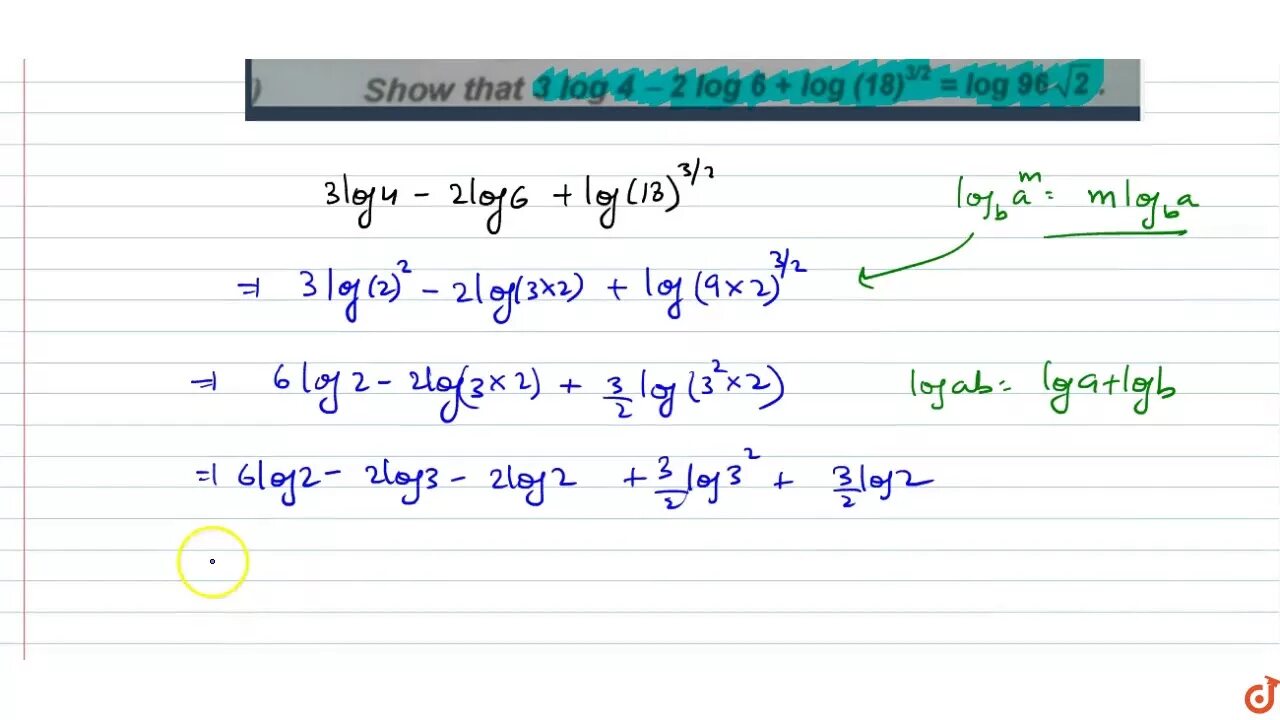 ) Show that 3 log 4 – 2 log 6 + log (18)^3/2 = log 96 √2 .
3log4 - 2log6 + log(18)^3/2
log_b a^m = m log_b a
=> 3log(2)^2 - 2log(3×2) + log(9×2)^3/2
=> 6log2 - 2log(3×2) + 3/2 log(3^2×2)
logab = loga+logb
=> 6log2 - 2log3 - 2log2 + 3/2 log3^2 + 3/2 log2